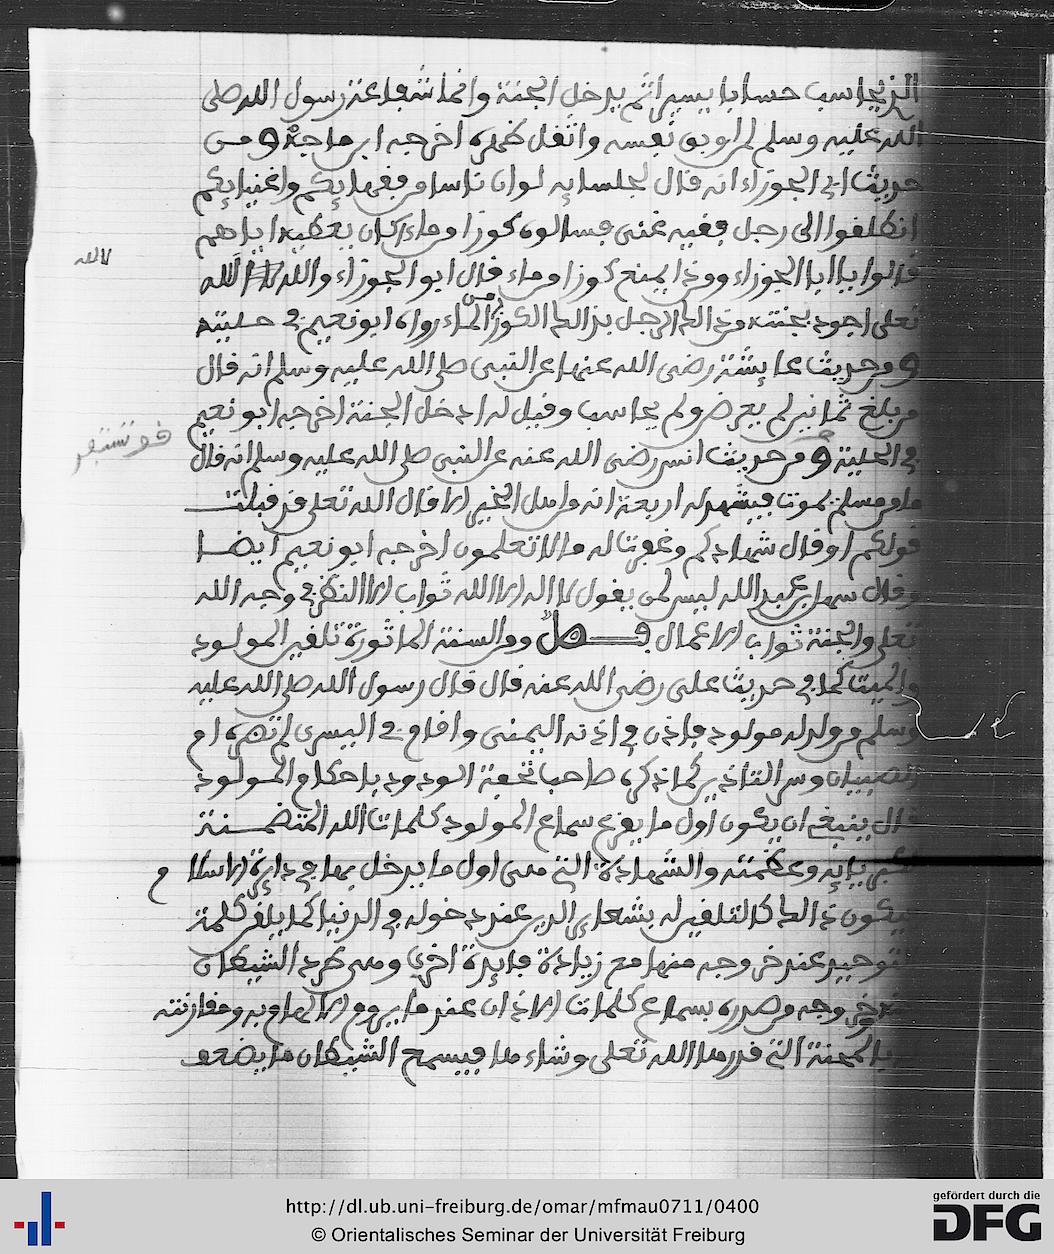 الذي يحاسب حسابا يسيرا ثم يدخل الجنة وانما شفاعة رسول الله صلى
الله عليه وسلم لمن اوبق نفسه واثقل ظهره اخرجه ابن ماجة ومن
حديث ابي الجوزاء انه قال لجلسايه لو ان ناسا من فقهايكم واغنيايكم
انطلقوا الى رجل فقيه غنى فسالوه كوزا من ماء اكان يعطيه اياهم
قالوا يا ابا الجوزاء ومن ذا يمنع كوزا من ماء قال ابو الجوزاء والله لله
لالله
تعلى اجود بجنته من ذالك الرجل بذالك الكوز من الماء رواه ابو نعيم في حليته
ومن حديث عايشة رضى الله عنها عن النبي صلى الله عليه وسلم انه قال
من بلغ ثمانين لم يعرض ولم يحاسب وقيل له ادخل الجنة اخرجه ابو نعيم
في الحلية ومن حديث انس رضى الله عنه عن النبي صلى الله عليه وسلم انه قال
ما من مسلم يموت فيشهد له اربعة انه من اهل الخير الا قال الله تعلى قد قبلت
قولكم او قال شهادكم وغفرت له ما لا تعلمون اخرجه ابو نعيم ايضا
وقال سهل بن عبد الله ليس لمن يقول لا اله الا الله ثواب الا النظر في وجه الله
تعلى والجنة ثواب الاعمال فصل ومن السنة الماثورة تلقين المولود
والميت كما في حديث على رضى الله عنه قال قال رسول الله صلى الله عليه
وسلم من ولد له مولود فاذن في اذنه اليمنى واقام في اليسرى لم تضره ام
الصبيان وسر التاذين كما ذكره صاحب تحفة الودود باحكام المولود
قال ينبغي ان يكون اول ما يقرع سماع المولود كلمات الله المتضمنة
لكبريايه وعظمته والشهادة التي هى اول ما يدخل بها في دايرة الاسلام
فيكون ذالك كالتلقين له بشعاير الدين عند دخوله في الدنيا كما يلقن كلمة
التوحيد عند خروجه منها مع زيادة فايدة اخرى وهى طرد الشيطان
عند خروجه وصدره بسماع كلمات الاذان عند ما يروم الالهام به ومقارنته
بالمحنة التي قدرها الله تعلى وشاءها فيسمع الشيطان ما يضعف
http://dl.ub.uni-freiburg.de/omar/mfmau0711/0400
© Orientalisches Seminar der Universität Freiburg
gefördert durch die
DFG